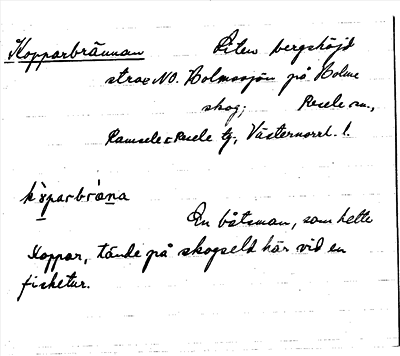 Kopparbrännan Liten bergshöjd
strax NO. Holmsjön på Holme
skog; Resele sn.,
Ramsele o Resele tg, Västernorrl. l.
kò̀parbrǽna
En båtsman, som hette
Koppar, tände på skogseld här vid en
fisketur.